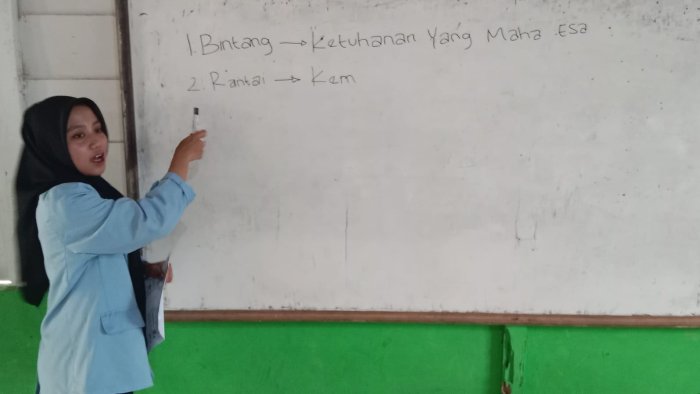 1. Bintang → Ketuhanan Yang Maha Esa
2. Rantai → Kem